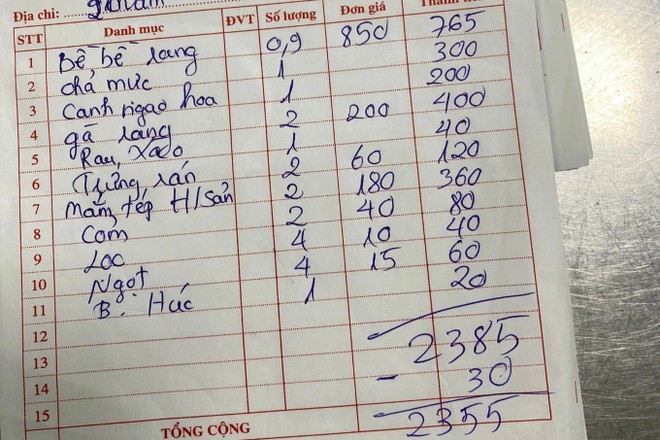 Địa chỉ:
STT Danh mục ĐVT Số lượng Đơn giá
1 Bề bề rang 0,9 850 765
2 chả mực 1 300
3 Canh ngao hoa 1 200
4 gà rang 2 200 400
5 Rau, xào 1 40
6 Trứng rán 2 60 120
7 Mắm tép H/sản 2 180 360
8 Cơm 2 40 80
9 Loc 4 10 40
10 Ngọt 4 15 60
11 B. Húc 1 20
12
13 2385
14 - 30
15 2355
TỔNG CỘNG